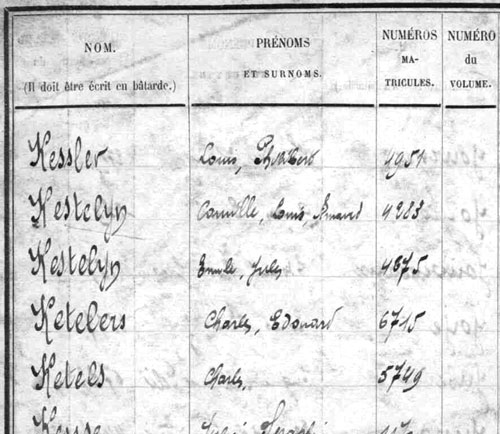 NOM.
(Il doit être écrit en bâtarde.)
PRÉNOMS
ET SURNOMS.
NUMÉROS
MA-
TRICULES.
NUMÉRO
du
VOLUME.
Kessler Louis, 4951
Kestelyn Camille, Louis, Amand 4283
Kestelyn Emile, Jules 4875
Ketelers Charles, Edouard 6715
Ketels Charles, 5749